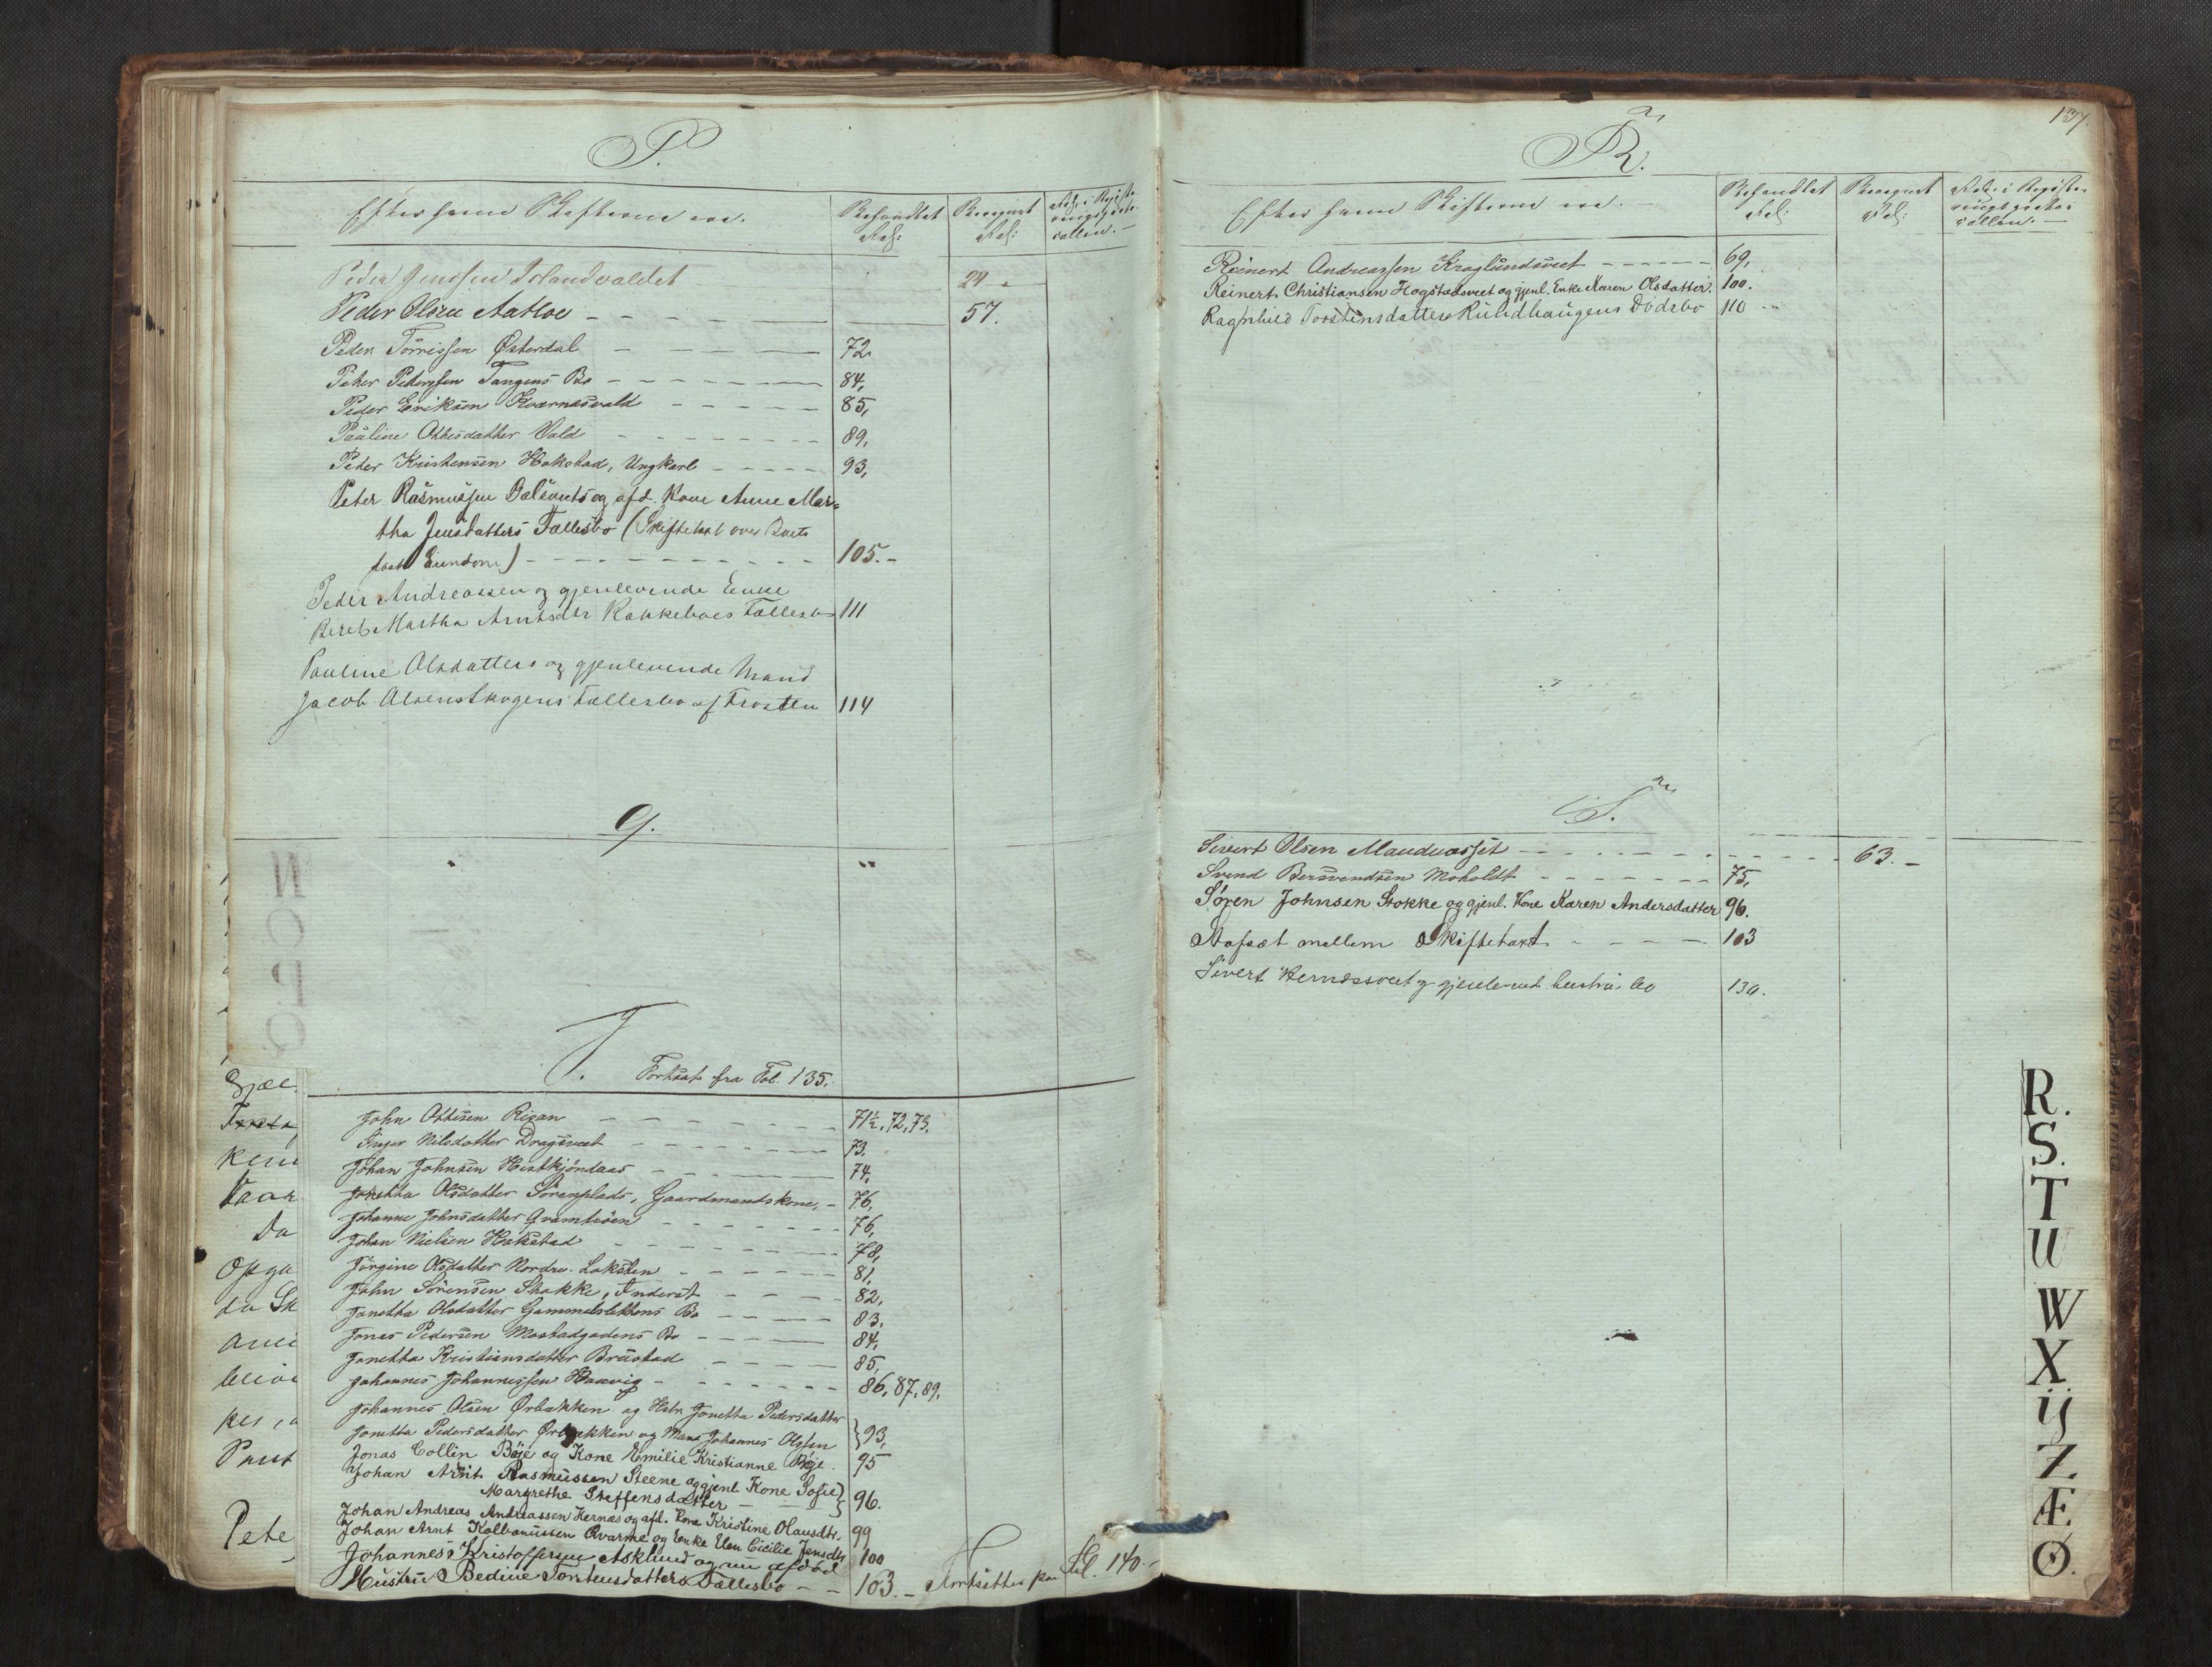 P.
Efter hvem Skifterne ere.
Behandlet Fol:
Beregnet Fol:
Fol: i Registreringsprotocollen.
Peder Jenssen 24
Peder Olsen Aatloe 57.
Peder Torrissen Østerdal 72
Peter Pedersen Tangens Bo 84,
Peder Eriksen Kvarnesvald 85,
Pauline Ottesdatter Vald 89,
Peter Kristensen Hokstad, Ungkarl 93,
Peter Rasmussen Dalsveets og afd. Kone Anne Mar=
tha Jensdatters Fællesbo (Skiftetaxt over Boets
faste Eiendom) 105.
Peder Andreassen og gjenlevende Enke
Beret Martha Arntsdtr Rokkeboes Fællesbo 111
Pauline Olsdatters og gjenlevende Mand
Jacob Olsens Skogens Fællesbo af Frosten 114
Q.
J. Fortsat fra Fol. 135.
John Ottesen Risan 71½, 72, 73,
Inger Nilsdatter Dragsveet 73.
Johan Johnsen Hestkjøndaas 74,
Jonetta Olsdatter Sørenplads, Gaardmandskone, 76,
Johanne Johnsdatter Gramtrøen 76,
Johan Nielsen Hokstad 78,
Jørgine Olsdatter Nordre Loksten 81,
John Sørensen Stokke, Inderst 82,
Jonetta Olsdatter Gammelslettens Bo 83,
Jonas Pedersen Mostadgadens Bo 84,
Jonetta Kristiansdatter Brustad 85,
Johannes Johannessen Haavig 86, 87, 89,
Johannes Olsen Ørbækken og Hstr. Jonetta Pedersdatter
Jonetta Pedersdatter Ørbækken og Mand Johannes Olsen 93,
Jonas Collin Bøje og Kone Emilie Kristianne Bøje. 95
Johan Arnt Rasmussen Steene og gjenl. Kone Sofie
Margrethe Steffensdatter 96.
Johan Andreas Andreassen Hernæs og afd. Kone Kristine Olausdtr. 99
Johan Arnt Kolbanussen Qvarme og Enke Elen Cicilie Jensdtr 100
Johannes Kristoffersen Asklund og nu afdød
Hustru Bedine Torstensdatters Fællesbo 103. Fortsættes paa Fol. 140.
Gjæl
kem
Vaar
Da
Opga
da Sk
Pete
N
O
P
Q
137.
R.
Efter hvem Skifterne ere.
Behandlet Fol:
Beregnet Fol:
Fol: i Registreringsprotocollen.
Reinert Andreassen Kroglundsveet 69,
Reinert Christiansen Hogstadsveet og gjenl. Enke Maren Olsdatter. 100.
Ragnhild Torstensdatter Kulidhaugens Dødsbo 110
S.
Sivert Olsen Mandnæsset 63.
Svend Bersvendsen Moholdt 75,
Søren Johnsen Stokke og gjenl. Kone Karen Andersdatter 96.
Stafsæt mellem Skiftetaxt 103
Sivert Hernæsveet og gjenlevend. hustrus bo 130.
R.
S.
T
U
W
X
Y
Z
Æ
Ø.